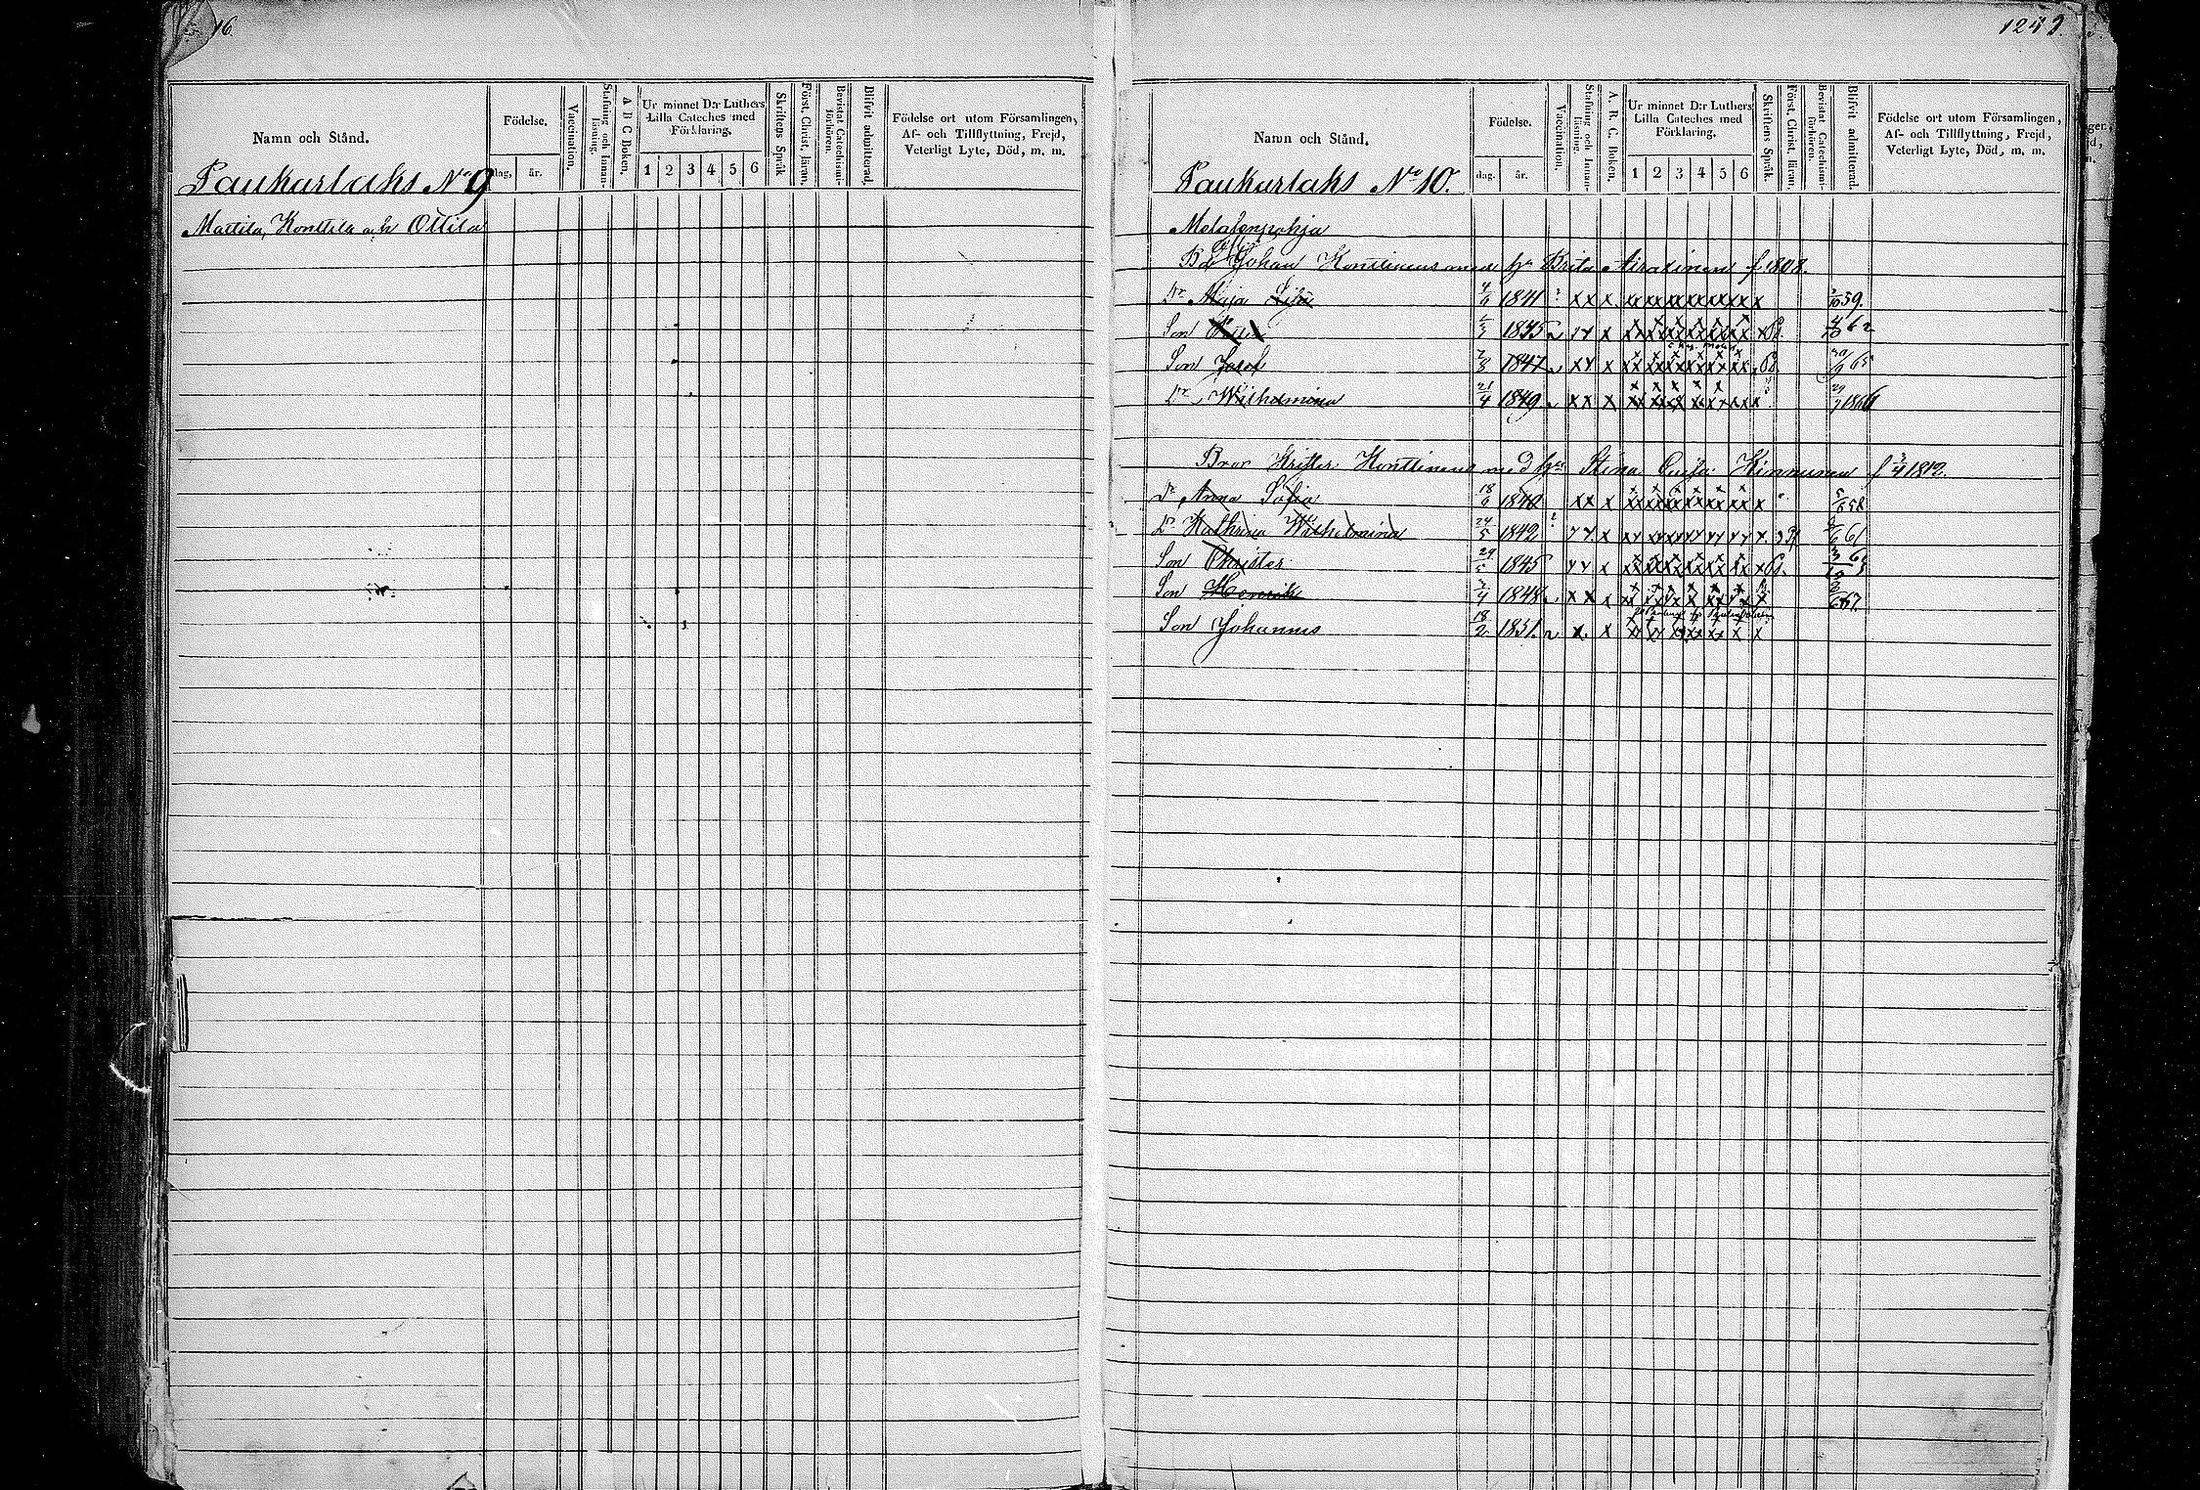 16.
Namn och Stånd.
Födelse.
dag.
år.
Vaccination.
Stafning och Innanläsning.
A B C Boken.
Ur minnet D:r Luthers Lilla Cateches med Förklaring.
1 2 3 4 5 6
Skriftens Språk
Först. Christ. läran.
Bevistat Catechismiförhören.
Blifvit admitterad.
Födelse ort utom Församlingen, Af- och Tillflyttning, Frejd, Veterligt Lyte, Död, m. m.
Paukarlaks No 9
Martila, Konttila och Ottila
Namn och Stånd.
Födelse.
dag.
år.
Vaccination.
Stafning och Innanläsning.
A. B. C. Boken.
Ur minnet D:r Luthers Lilla Cateches med Förklaring.
1 2 3 4 5 6
Skriftens Språk.
Först. Christ. läran.
Bevistat Catechismiförhören.
Blifvit admitterad.
Födelse ort utom Församlingen, Af- och Tillflyttning, Frejd, Veterligt Lyte, Död, m. m.
Paukarlaks No 10.
Johan Konttinens med hu Brita f 1808.
Dr Maja 4/6 1841 x x x 59.
Son 1845 62
Son Josef 1847 65
Dr Wilhelmina 21/4 1849 x x x 1866
Bror Krister Konttinens med hu Stina Kinnunen f 1812.
Dr Anna Sofia 18/6 1840 x x x 58
Dr Kathrina Wilhelmina 24/5 1842 61
Son Christer 29/5 1845 63
Son Henrik 1848 x x x 67
Son Johannes 18/2 1851. x x